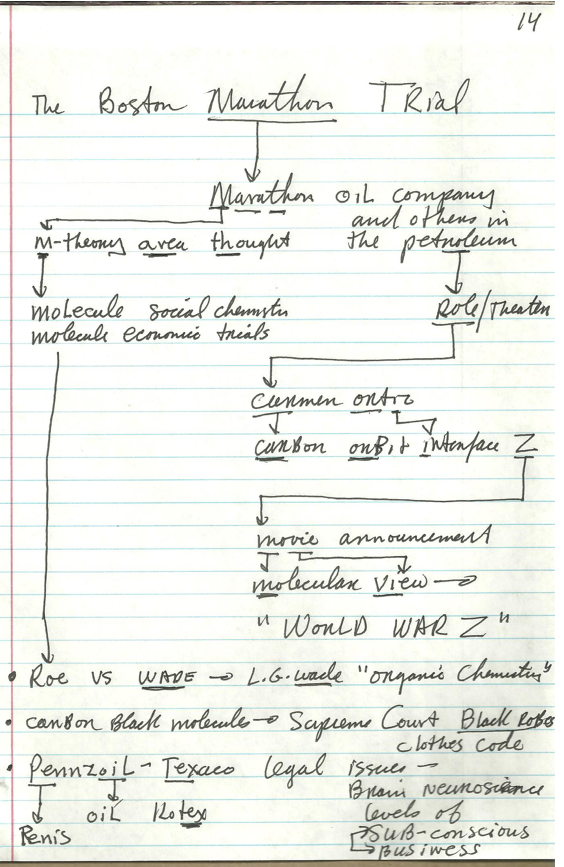 14
The Boston Marathon Trial
Marathon oil company
and others in
m-theory area thought the petroleum
molecule social chemstr
molecule economic trials
Role/Theater
carmen ontrz
carBon orBit interface Z
movie announcement
molecular view →
"WORLD WAR Z"
• Roe VS WADE → L.G. wade "organic Chemistry"
• carBon Black molecules → Supreme Court Black Robes
clothes code
• Pennzoil - Texaco legal issues -
Brain neuroscience
Penis oil Kotex levels of
SUB-conscious
Business